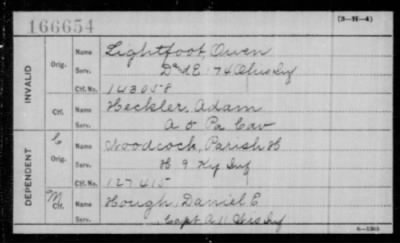 166654
(3-H-4)
INVALID
Orig.
Name Lightfoot, Owen
Serv. D & E 74 Ohio Inf
Ctf. No. 143058
Ctf.
Name Heckler, Adam
Serv. A 5 Pa Cav
DEPENDENT
C
Orig.
Name Woodcock, Parish H
Serv. H 9 Ky Inf
Ctf. No. 127415
M
Ctf.
Name Hough, Daniel E
Serv. Capt A 11 Inf